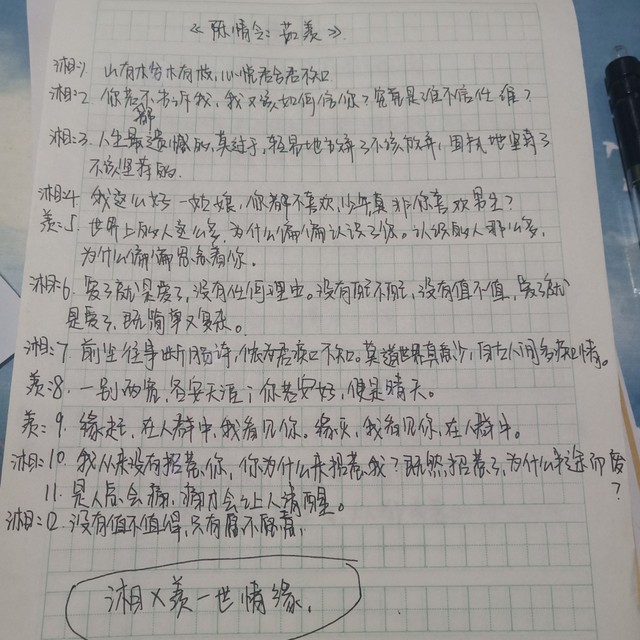 《陈情令：茹羡》
湘:1 山有木兮木有枝，心悦君兮君不知
湘:2 你若不告诉我，我又该如何信你？究竟是谁不信任谁？
湘:3 人生最遗憾的，莫过于，轻易地放弃了不该放弃，固执地坚持了
不该坚持的.
湘:4. 我这么好一姑娘，你都不喜欢，你喜欢男生？
羡:5. 世界上的人这么多，为什么偏偏认识了你。认识的人那么多，
为什么偏偏思念着你。
湘:6 爱了就是爱了，没有任何理由。没有配不配，没有值不值，爱了就
是爱了，既简单又复杂。
湘:7. 前尘往事断肠诗，侬为君痴君不知。莫道世界真意少，自古人间多痴情。
羡:8. 一别两宽，各安天涯；你若安好，便是晴天。
羡:9. 缘起，在人群中，我看见你。缘灭，我看见你，在人群中。
湘:10 我从来没有招惹你，你为什么来招惹我？既然招惹了，为什么半途而废
？
11. 是人总会痛，痛才会让人清醒。
湘:12. 没有值不值得，只有愿不愿意，
湘X羡一世情缘.